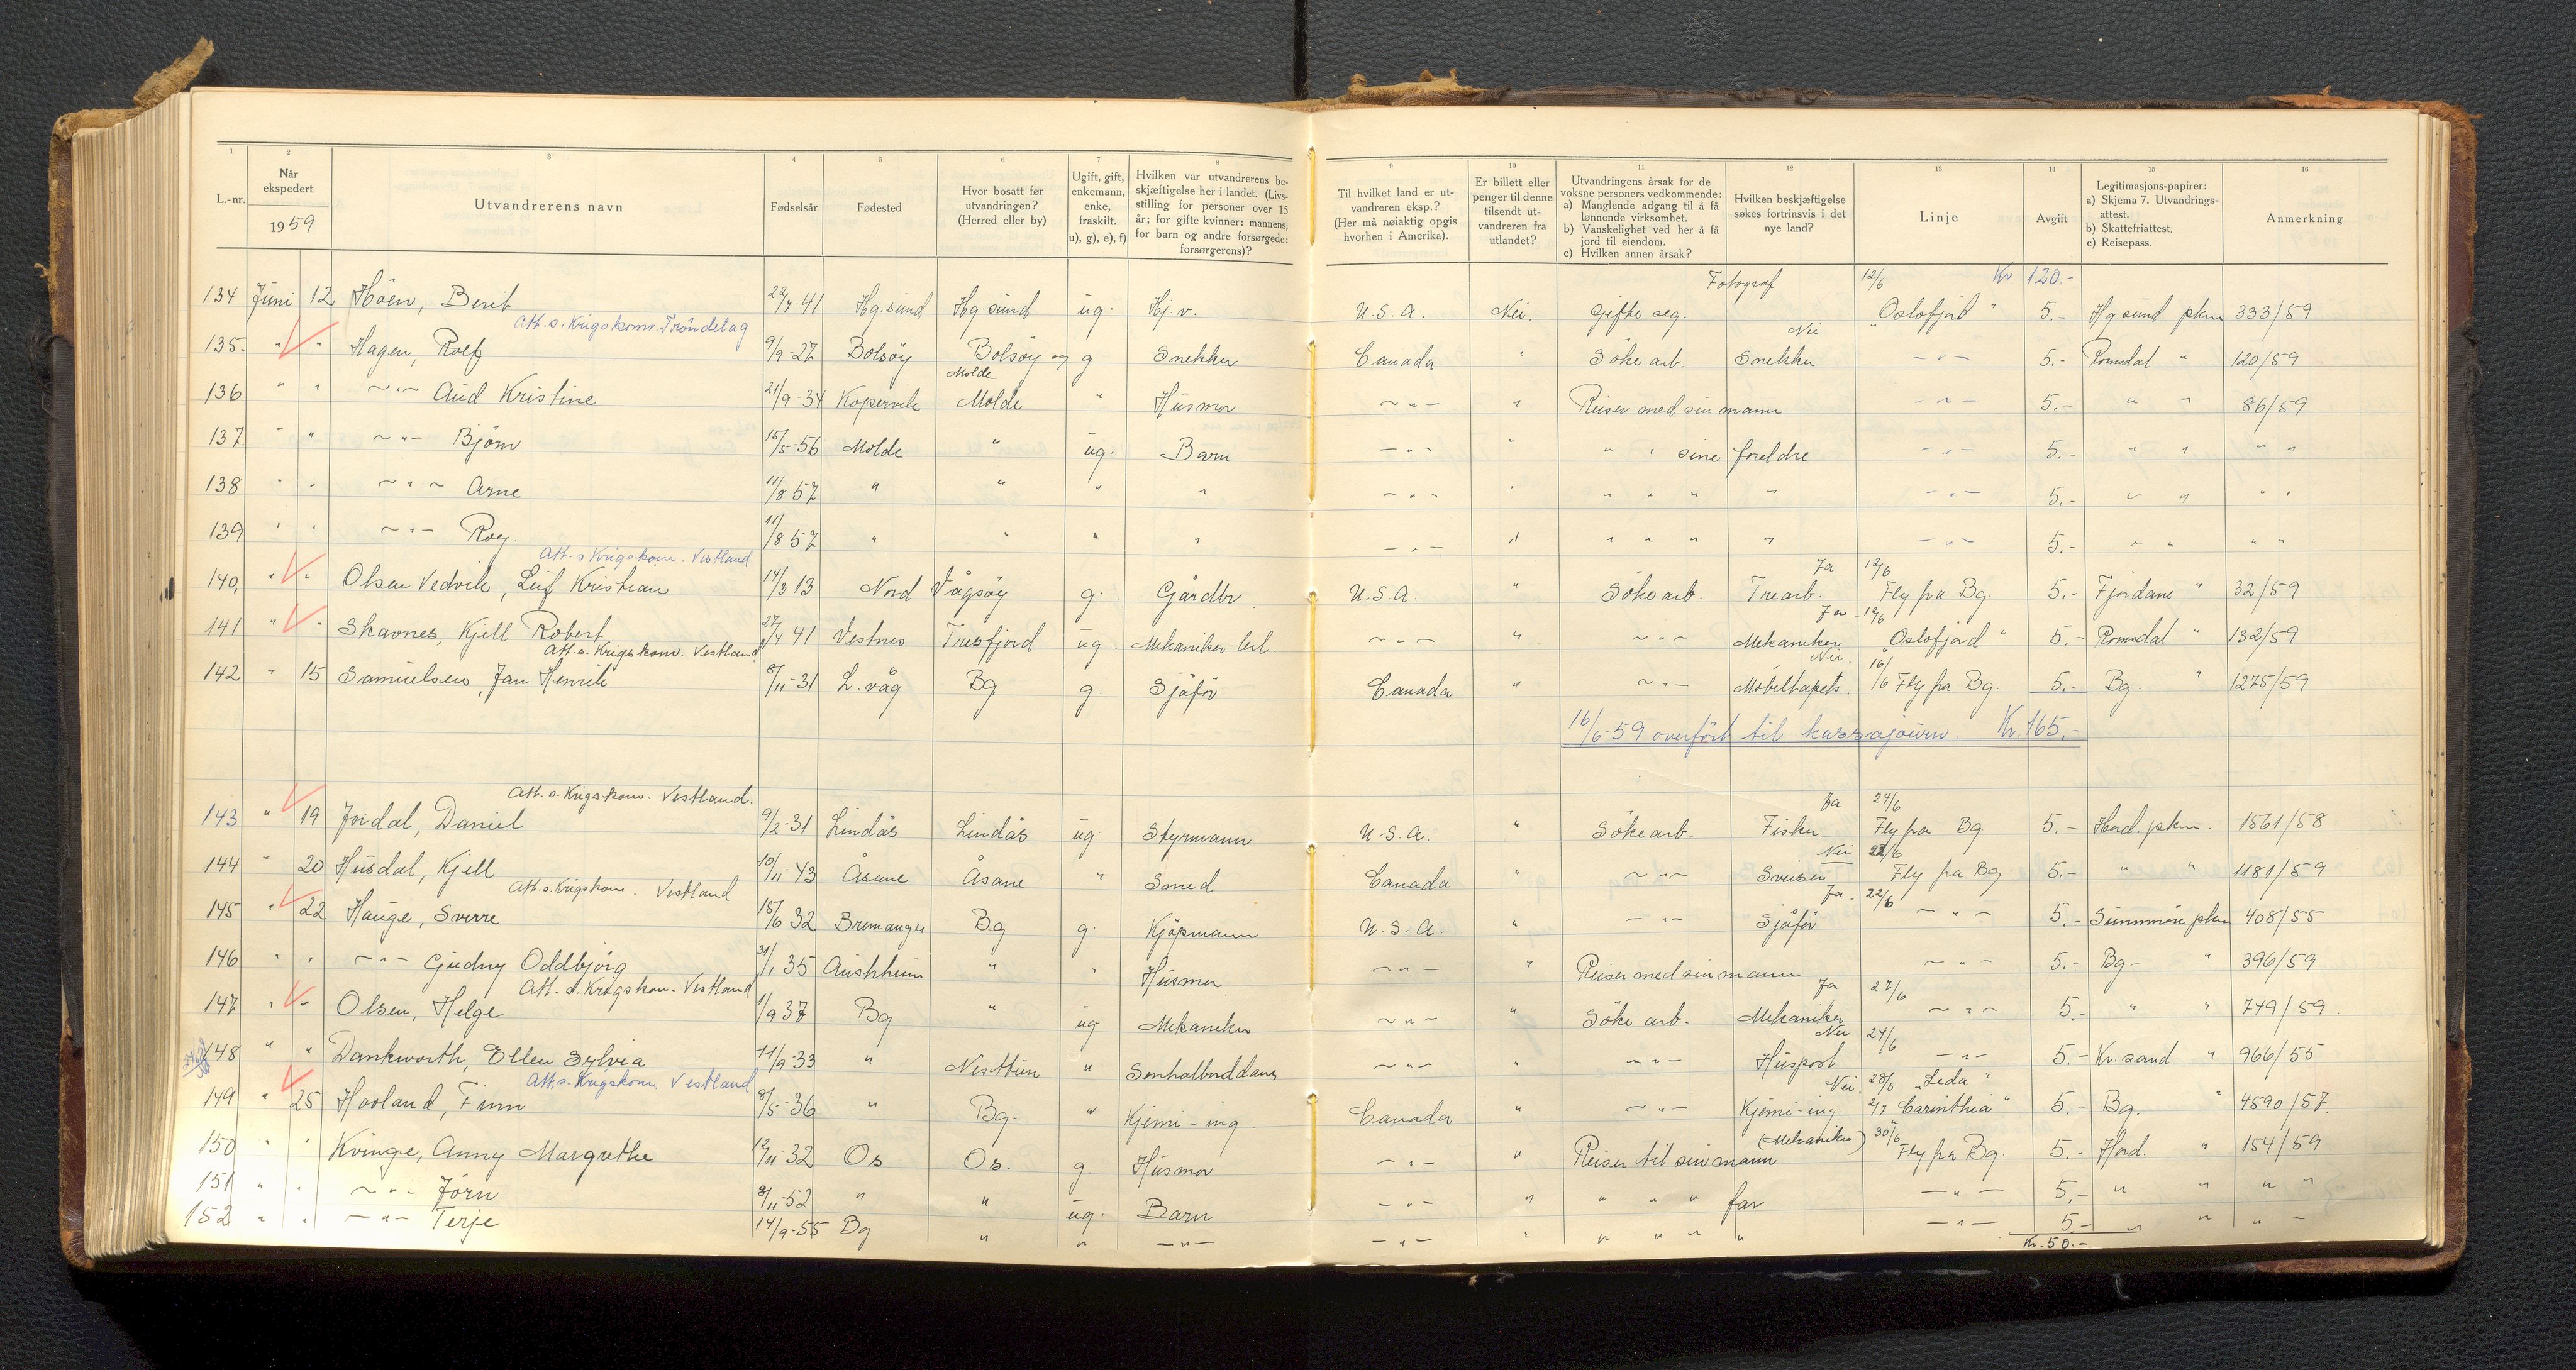 1 2 3 4 5 6 7 8 9 10 11 12 13 14 15 16
L.-nr. Når ekspedert 1959 Utvandrerens navn Fødselsår Fødested Hvor bosatt før utvandringen? (Herred eller by) Ugift, gift, enkemann, enke, fraskilt. u), g), e), f) Hvilken var utvandrerens beskjæftigelse her i landet. (Livsstilling for personer over 15 år; for gifte kvinner: mannens, for barn og andre forsørgede: forsørgerens)? Til hvilket land er utvandreren eksp.? (Her må nøiaktig opgis hvorhen i Amerika). Er billett eller penger til denne tilsendt utvandreren fra utlandet? Utvandringens årsak for de voksne personers vedkommende: a) Manglende adgang til å få lønnende virksomhet. b) Vanskelighet ved her å få jord til eiendom. c) Hvilken annen årsak? Hvilken beskjæftigelse søkes fortrinsvis i det nye land? Linje Avgift Legitimasjons-papirer: a) Skjema 7. Utvandringsattest. b) Skattefriattest. c) Reisepass. Anmerkning
Fotograf 12/6 Kr. 120.-
134 Juni 12 Höen, Berit 22/7-41 Hg.sund Hg.sund ug. Hj.v. U.S.A. Nei. Gifte seg. "Oslofjord" 5.- Hg.sund pkm 333/59
Att. s. Krigskom. Tröndelag Nei
135. " " Hagen, Rolf 9/9-27 Bolsöy Bolsöy og Molde g Snekker Canada " Söke arb. Snekker -"- 5.- Romsdal " 120/59
136 " " -"- Aud Kristine 21/9-34 Kopervik Molde " Husmor -"- " Reiser med sin mann -"- 5.- " " 86/59
137. " " -"- Björn 15/5-56 Molde " ug. Barn -"- " " " sine foreldre -"- 5.- " " " "
138 " " -"- Arne 11/8 57 " " " " -"- " " " " " -"- 5.- " " " "
139 " " -"- Roy. 11/8 57 " " " " -"- " " " " " -"- 5.- " " " "
Att. s Krigskom. Vestland Ja 12/6
140, " " Olsen Vedvik, Leif Kristian 14/3 13 Nord Vågsöy g. Gårdbr. U.S.A. " Söke arb. Trearb. Fly fra Bg. 5.- Fjordane " 32/59
Ja 12/6
141 " " Skavnes, Kjell Robert 27/4 41 Vestnes Tresfjord ug. Mekaniker-lerl. -"- " -"- Mekaniker "Oslofjord" 5.- Romsdal " 132/59
Att. s. Krigskom. Vestland Nei. 16/
142 " 15 Samuelsen, Jan Henrik 8/11-31 L.våg Bg g. Sjåför Canada " -"- Möbeltapets. 16/6 Fly fra Bg. 5.- Bg. " 1275/59
16/6-59 overfört til kassajourn. Kr. 165.-
Att. s. Krigskom. Vestland. Ja 24/6
143 " 19 Jordal, Daniel 9/2-31 Lindås Lindås ug. Styrmann U.S.A. " Söke arb. Fisker Fly fra Bg 5.- Hord. pkm. 1561/58
Nei 22/6
144 " 20 Husdal, Kjell 10/11-43 Åsane Åsane " Smed Canada " -"- Sveiser Fly fra Bg 5.- " " 1181/59
Att. s. Krigskom. Vestland Ja. 22/6
145 " 22 Hauge, Sverre 15/6 32 Bremanger Bg g. Kjöpmann U.S.A. " -"- Sjåför -"- 5.- Sunnmöre pkm 408/55
146 " " -"- Gudny Oddbjörg 31/1 35 Austrheim " " Husmor -"- " Reiser med sin mann -"- 5.- Bg- " 396/59
Att. s. Krigskom. Vestland Ja 27/6
147 " " Olsen, Helge 1/9 37 Bg " ug. Mekaniker -"- " Söke arb. Mekaniker -"- 5.- " " 749/59.
Nei 24/6
148 " " Dankworth, Ellen Sylvia 11/9-33 " Nesttun " -"- " -"- Huspost -"- 5.- Kr.sand " 966/55
Att. s. Krigskom. Vestland Nei. 28/6 "Leda"
149 " 25 Hovland, Finn 8/5-36 " Bg- " Kjemi-ing. Canada " -"- Kjemi-ing 2/7 "Carinthia" 5.- Bg. " 4590/57.
(Mekaniker) 30/6
150 " " Kvinge, Anny Margrethe 12/11-32 Os Os. g. Husmor -"- " Reiser til sin mann Fly fra Bg. 5.- Hord. " 154/59
151 " " -"- Jörn 8/11-52 " " ug. Barn -"- " " " " far -"- 5.- " " " "
152 " " -"- Terje 14/9-55 Bg " " -"- -"- " " " " " -"- 5.- " " " "
Kr. 50.-